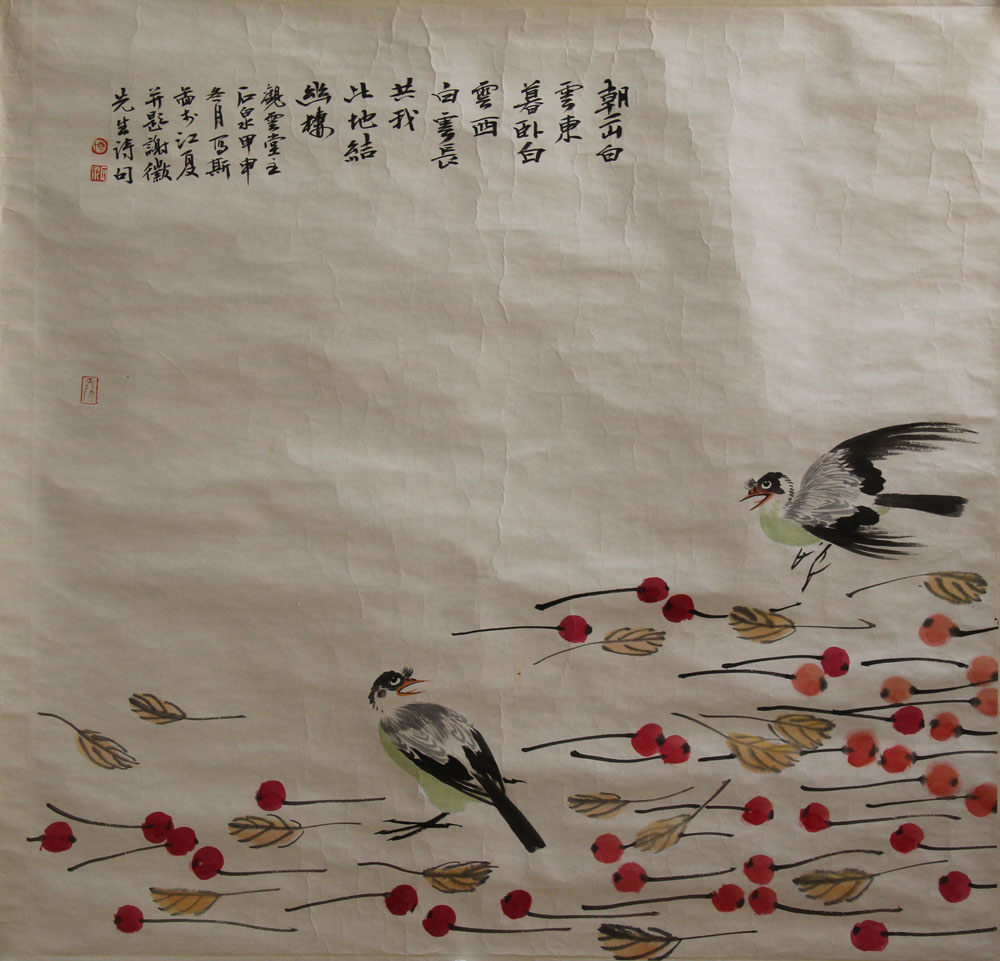 朝出白
雲東
暮卧白
雲西
白雲長
共我
此地結
幽棲
觀雲堂主
石泉甲申
冬月写斯
啚於江夏
并題謝徽
先生詩句